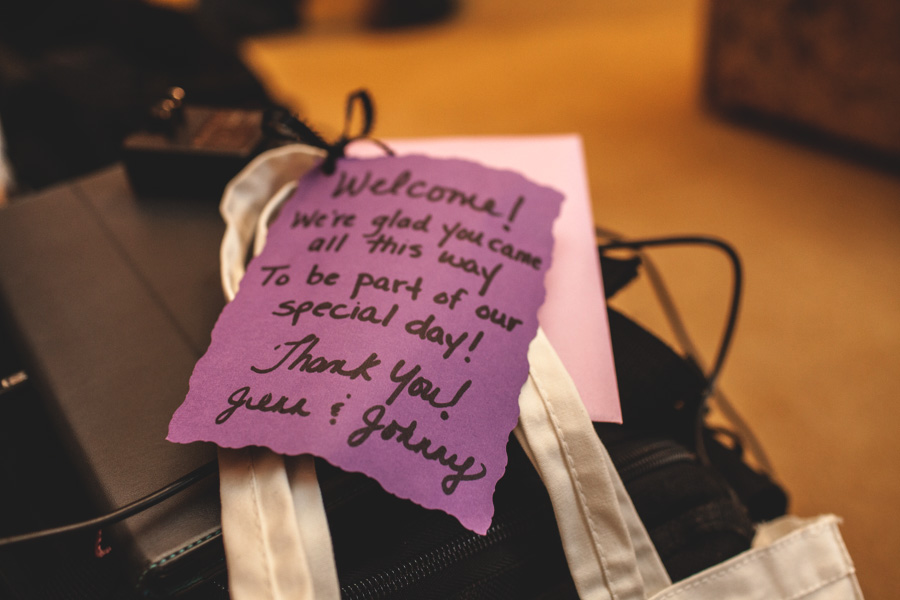 Welcome!
We're glad you came
all this way
To be part of our
special day!
Thank You!
Jenn & Johnny